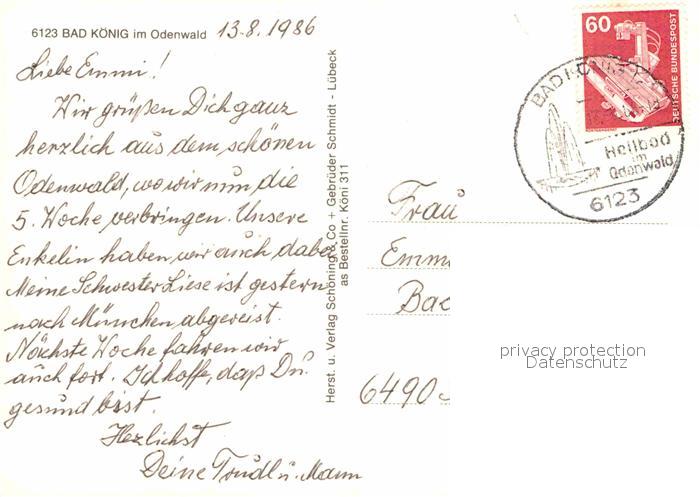 6123 BAD KÖNIG im Odenwald 13.8.1986
Liebe Emmi!
Wir grüßen Dich ganz
herzlich aus dem schönen
Odenwald, wo wir nun die
5. Woche verbringen. Unsere
Enkelin haben wir auch dabei
Meine Schwester Liese ist gestern
nach München abgereist.
Nächste Woche fahren wir
auch fort. Ich hoffe, daß Du
gesund bist.
Herzlichst
Deine Trudl u. Mann
Herst. u. Verlag Schöning & Co + Gebrüder Schmidt - Lübeck
as Bestellnr. Köni 311
60
DEUTSCHE BUNDESPOST
BAD KÖNIG
Heilbad
im
Odenwald
6123
Frau
Emmi
Bac
6490
privacy protection
Datenschutz